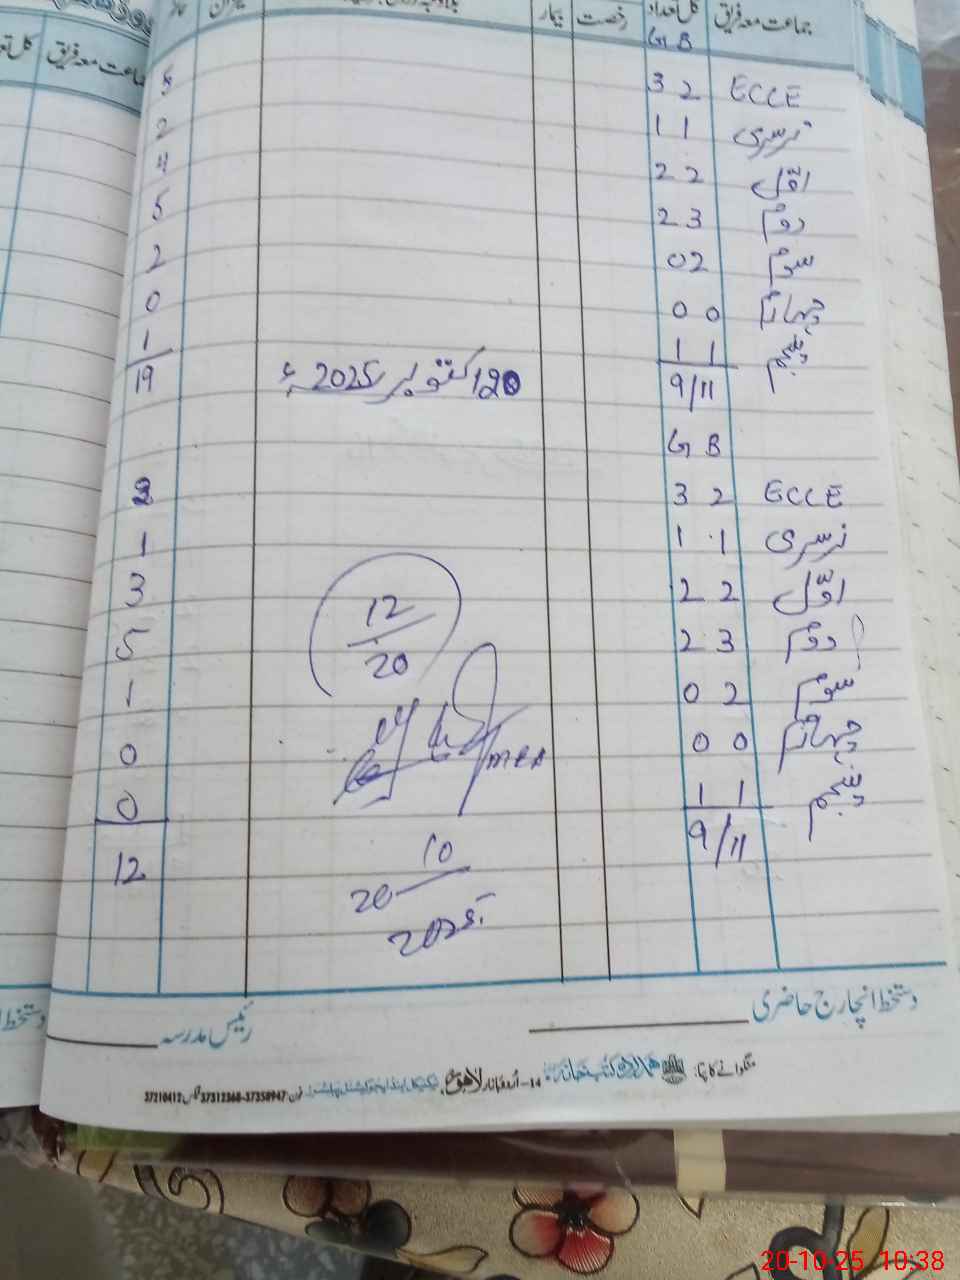 جماعت معہ فریق کل تعداد رخصت بیمار
G B
ECCE 3 2 5
نرسری 1 1 2
اوّل 2 2 4
دوم 2 3 5
سوم 0 2 2
چہارم 0 0 0
پنجم 1 1 1
9/11 19
20 اکتوبر 2025ء
G B
ECCE 3 2
نرسری 1 1 1
اوّل 2 2 3
دوم 2 3 5
سوم 0 2 1
چہارم 0 0 0
پنجم 1 1 0
9/11 12
12/20
MEA
20 10
2025
دستخط انچارج حاضری
رئیس مدرسہ
منگوانے کا پتہ:
14-اُردو بازار لاہور
فون 37312368-37358947 فیکس 37210412
جماعت معہ فریق
20-10-25 10:38